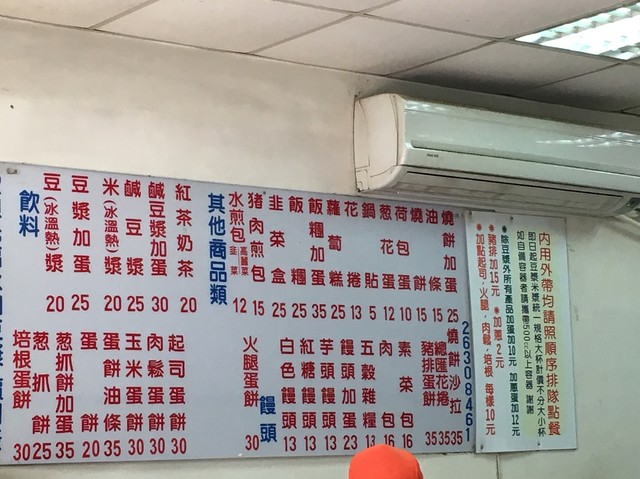 飲料
豆漿(冰溫熱) 20
豆漿加蛋 25
米漿(冰溫熱) 25
鹹豆漿 25
鹹豆漿加蛋 30
紅茶奶茶 20
其他商品類
水煎包 高麗菜 韭菜 12
豬肉煎包 15
韭菜盒 25
飯糰 25
飯糰加蛋 35
蘿蔔糕 25
花捲 13
鍋貼 5
葱花蛋 12
荷包蛋 10
燒餅 15
油條 15
燒餅加蛋 25
培根蛋餅 30
葱抓餅 25
葱抓餅加蛋 35
蛋餅 20
蛋餅油條 35
玉米蛋餅 30
肉鬆蛋餅 30
起司蛋餅 30
火腿蛋餅 30
饅頭
白色饅頭 13
紅糖饅頭 13
芋頭饅頭 13
饅頭加蛋 23
五穀雜糧 13
肉包 16
素菜包 16
豬排蛋餅 35
總匯花捲 35
燒餅沙拉 35
26308461
內用外帶均請照順序排隊點餐
即日起豆漿米漿統一規格大杯計價不分大小杯
如自備容器者請攜帶500cc以上容器 謝謝
●除豆漿外所有產品加蛋加10元 加蔥蛋加12元
●豬排加15元 ●加蔥2元
●加點起司,火腿,肉鬆,培根 每樣10元